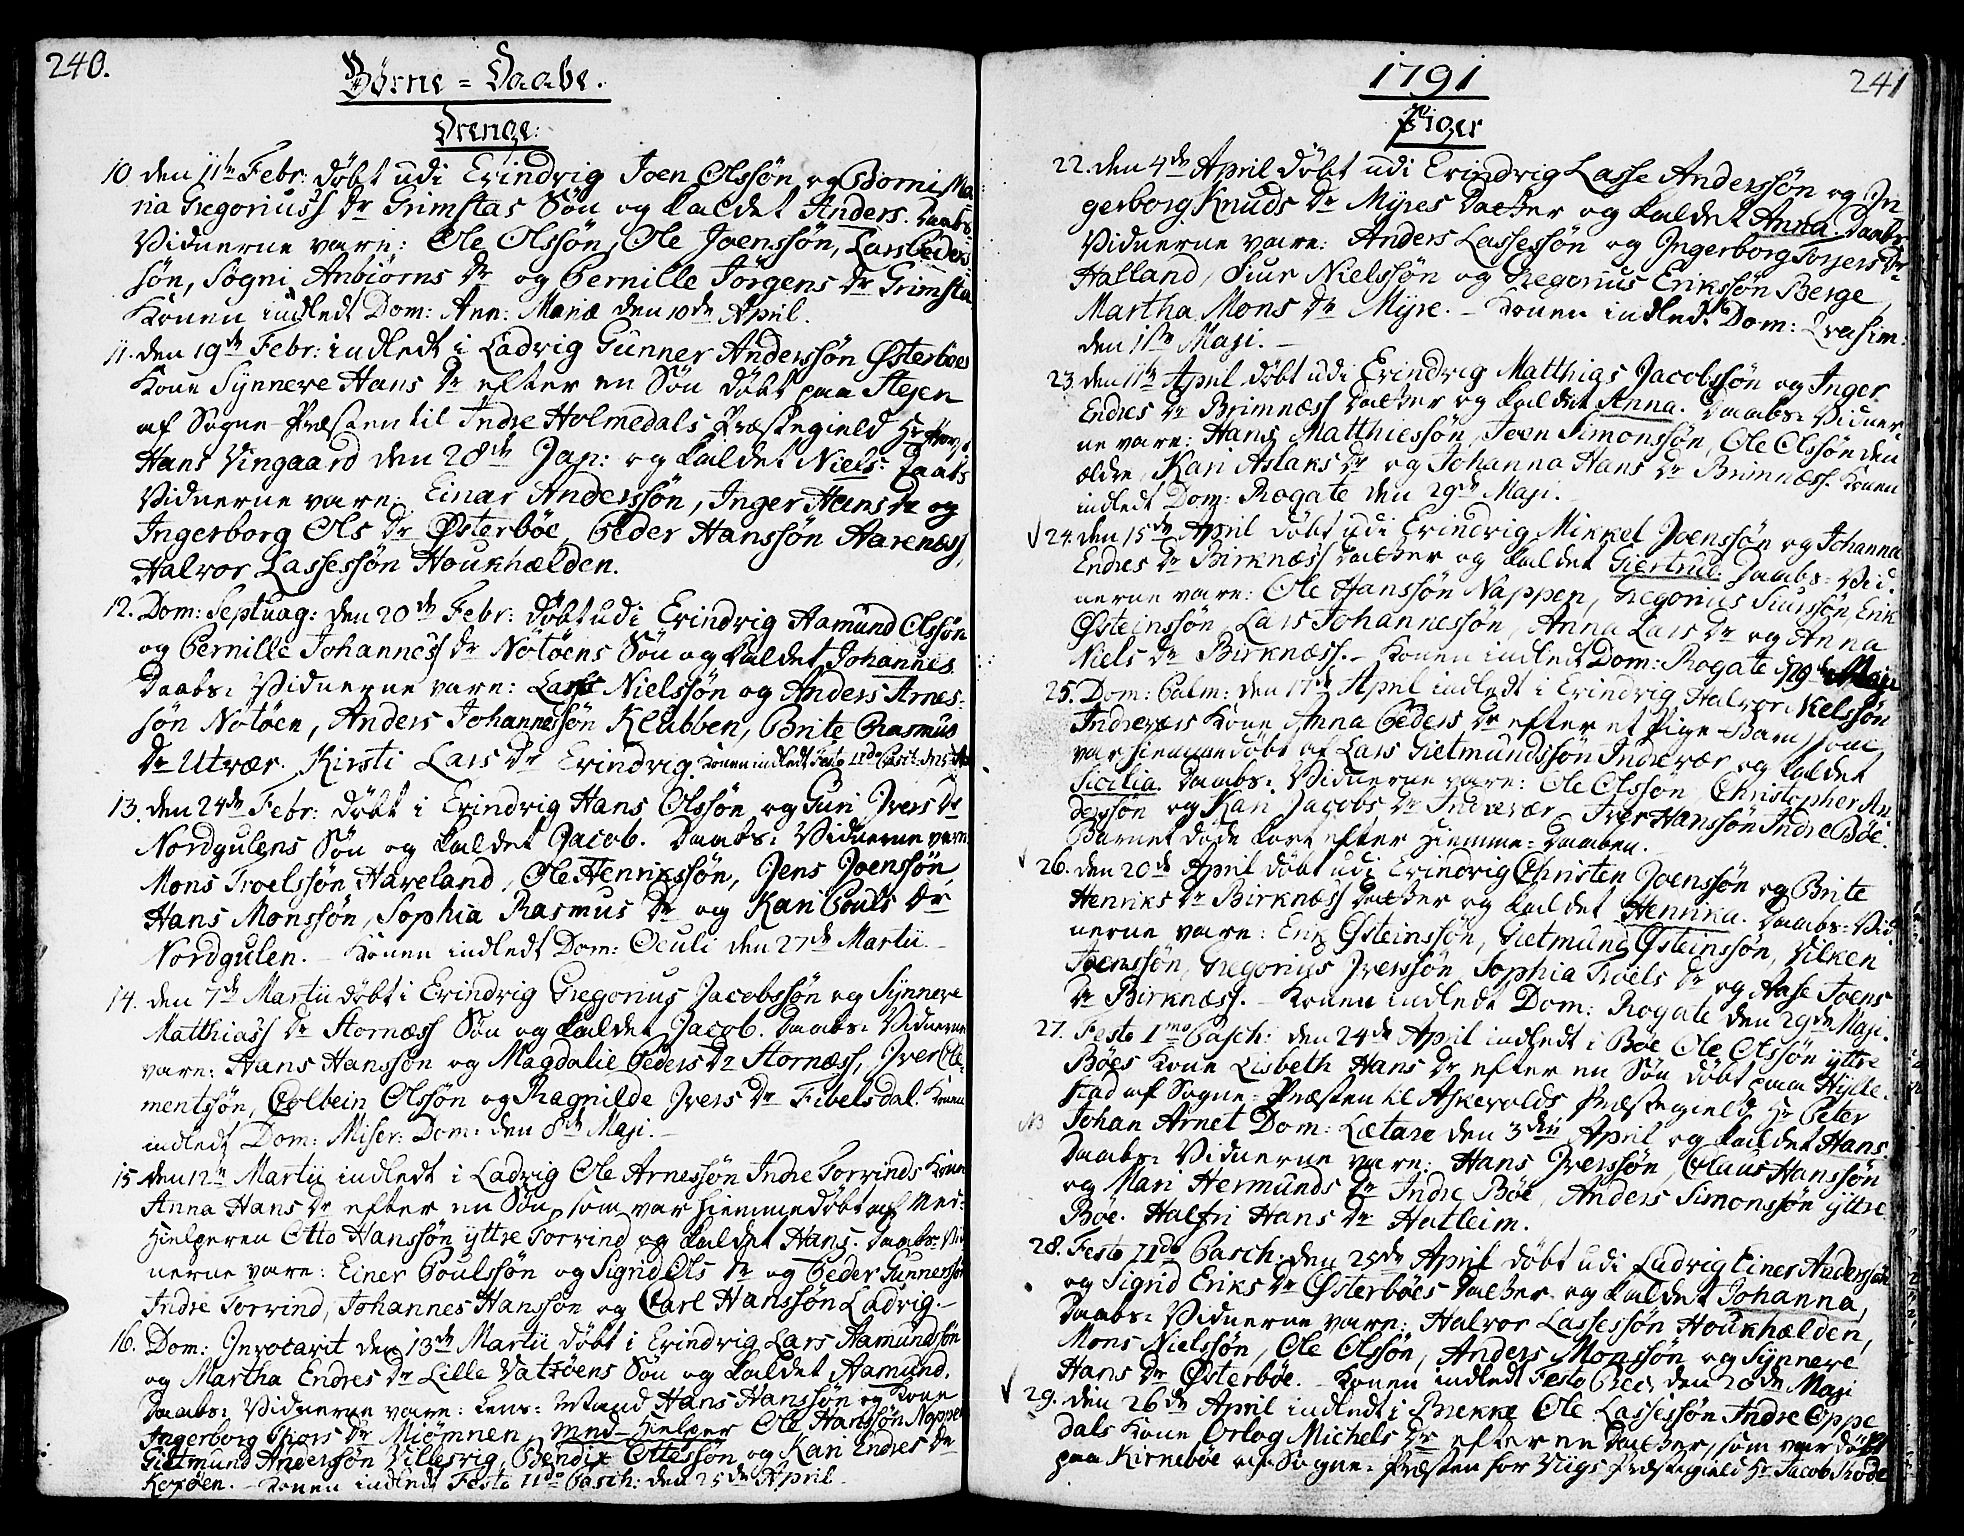 240.
Børne = Daabe.
Drenge:
10. den 11te Febr: døbt udi Evindvig Joen Olssøn og Borni Ma-
ria Gregoriuss Dr Grimstas Søn og kaldet Anders. Daabs-
Vidnerne vare: Ole Olssøn, Ole Joenssøn, Lars Peders-
søn, Søgni Anbiørns Dr og Pernille Jørgens Dr Grimsta
Konen indledt Dom: Ann: Mariæ den 10de April.
11. den 19de Febr: indledt i Ladvig Gunner Anderssøn Østerbøes
Kone Synneve Hans Dr efter en Søn døbt paa Flejen
af Sogne-Præsten til Indre Holmedals Præstegield Hr
Hans Vingaard den 28de Jan: og kaldet Niels: Daabs
Vidnerne vare: Einar Anderssøn, Inger Hans Dr og
Ingerborg Ols Dr Østerbøe, Peder Hanssøn Aarenæss,
Halvor Lassessøn Houkhælden.
12. Dom: Septuag: den 20de Febr: døbt udi Evindvig Aamund Olssøn
og Pernille Johanness Dr Nötöens Søn og kaldet Johannes
Daabs: Vidnerne vare: Lars Nielssøn og Anders Arnes-
søn Nötöen, Anders Johannessøn Klubben, Brite Rasmus
Dr Utvær. Kirsti Lars Dr Evindvig. Konen indledt Festo IIdo Pasch:
13. den 24de Febr: døbt i Evindvig Hans Olssøn og Guri Ivers Dr
Nordgulens Søn og kaldet Jacob. Daabs: Vidnerne vare
Mons Troelssøn Haveland, Ole Henrikssøn, Jens Joenssøn
Hans Monssøn, Sophia Rasmus Dr og Kari Pouls Dr
Nordgulen. - Konen indledt Dom: Oculi den 27de Martii. -
14. den 7de Martii døbt i Evindvig Gregorius Jacobssøn og Synneve
Matthiass Dr Stornæss Søn og kaldet Jacob. Daabs: Vidnerne
vare: Hans Hanssøn og Magdalie Peders Dr Stornæss, Iver Cle-
mentssøn, Colbein Olssøn og Ragnilde Ivers Dr Fibelsdal. Konen
indledt Dom: Miser: Dom: den 8de Maji. -
15 den 12te Martii indledt i Ladvig Ole Arnessøn Indre Torvinds Kone
Anna Hans Dr efter en Søn, som var hiemmedøbt af Med-
hielperen Otto Hanssøn yttre Torvind og kaldet Hans. Daabs: Vid
nerne vare: Einer Poulssøn og Sigrid Ols Dr og Peder Gunnerssøn
Indre Torvind, Johannes Hanssøn og Carl Hanssøn Ladvig. -
16. Dom: Invocavit den 13de Martii døbt i Evindvig Lars Aamundssøn
og Martha Endres Dr Lille Vatsöens Søn og kaldet Aamund.
Daabs: Vidnerne vare: Lens: Mand Hans Hanssøn og Kone
Ingerborg Dr Miömnen, Med-Hielper Ole Hanssøn Nappen
Gietmund Anderssøn Villesvig, Bendix Ottessøn og Kari Endres Dr
- Konen indledt Festo IIdo Pasch: den 25de April -
1791
241
Piger
22. den 4de April døbt udi Evindvig Lasse Anderssøn og In
gerborg Knuds Dr Myres Datter og kaldet Anna. Daabs-
Vidnerne vare: Anders Lassessøn og Ingerborg Torjers Dr
Halland, Siur Nielssøn og Gregorius Erikssøn Berge,
Martha Mons Dr Myre. - Konen indledt Dom: Qvasim:
den 1ste Maji. -
23. den 11te April døbt udi Evindvig Matthias Jacobssøn og Inger
Endres Dr Brimnæss Datter og kaldet Anna. Daabs: Vidner-
ne vare: Hans Matthiessøn, Joen Simonssøn, Ole Olssøn den
ældre, Kari Aslaks Dr og Johanna Hans Dr Brimnæss. Konen
indledt Dom: Rogate den 29de Maji. -
24. den 15de April døbt udi Evindvig Mikkel Joenssøn og Johanna
Endres Dr Birknæss Datter og kaldet Giertrud. Daabs: Vid-
nerne vare: Ole Hanssøn Nappen, Gregorius Siurssøn, Erik
Østeinssøn, Lars Johannessøn, Anna Lars Dr og Anna
Niels Dr Birknæss. - Konen indledt Dom: Rogate 29de Maji
25. Dom: Palm: den 17de April indledt i Evindvig Halvor Nielssøn
Indrevers Kone Anna Peders Dr efter et Pige-Barn, som
var hiemmedøbt af Lars Gietmundssøn Indrevær og kaldet
Sicilia. Daabs: Vidnerne vare: Ole Olssøn, Christopher An-
derssøn og Kari Jacobs Dr Indrevær, Iver Hanssøn Indre Bøe.
Barnet døde kort efter hiemme-Daaben. -
26. den 20de April døbt udi Evindvig Christen Joenssøn og Brite
Henriks Dr Birknæss Datter og kaldet Henrika. Daabs: Vid-
nerne vare: Erik Østeinssøn, Gietmund Østeinssøn, Vilken
Joenssøn, Gregorius Iverssøn, Sophia Troels Dr og Aase Joens
Dr Birknæss. - Konen indledt Dom: Rogate den 29de Maji.
27. Festo Imo Pasch: den 24de April indledt i Bøe Ole Olssøn yttre
Bøes Kone Lisbeth Hans Dr efter en Søn døbt paa Hylle-
stad af Sogne-Præsten til Askevolds Præstegield Hr Peter
NB Johan Arnet Dom: Lætare den 3die April og kaldet Hans.
Daabs: Vidnerne vare: Hans Iverssøn, Claus Hanssøn
og Mari Hermunds Dr Indre Bøe, Anders Simonssøn yttre
Bøe. Halfri Hans Dr Hatleim.
28. Festo IIdo Pasch: den 25de April døbt udi Ladvig Einer Anderssøn
og Sigrid Eriks Dr Østerbøes Datter og kaldet Johanna,
Daabs: Vidnerne vare: Halvor Lassessøn Houkhælden,
Mons Nielssøn, Ole Olssøn, Anders Monssøn og Synneve
Hans Dr Østerbøe. - Konen indledt Festo Prec: den 20de Maji
29. den 26de April indledt i Brekke Ole Lassessøn Indre Oppe
dals Kone Orlog Michels Dr efter en Datter, som var døbt
paa Kirnebøe af Sogne-Præsten for Viigs Præstegield Hr Jacob